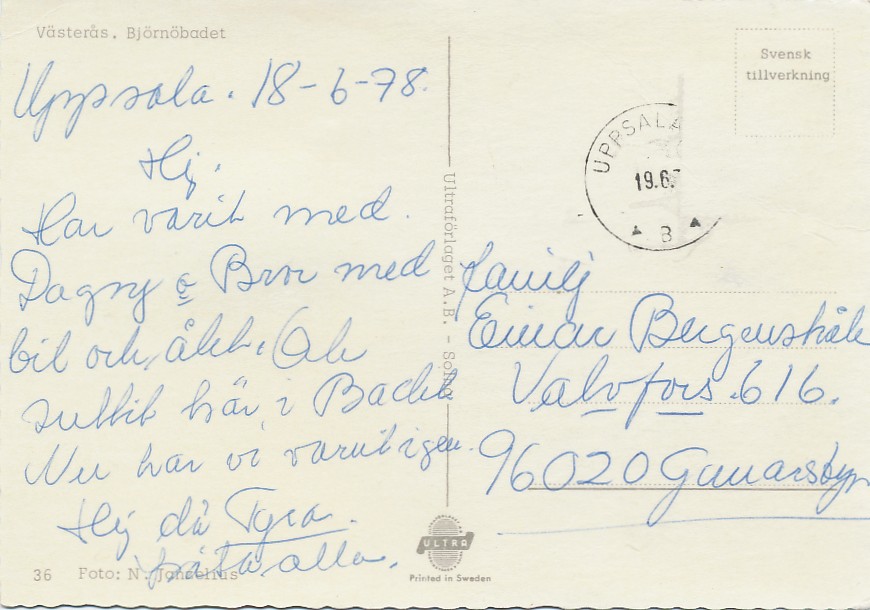 Västerås. Björnöbadet
Uppsala. 18-6-78.
Hej.
Har varit med.
Dagny o Bror med
bil och åkt. Ok
suttit här i Backen
Nu har vi varit igen.
Hej då Tyra.
alla.
36 Foto: N. Jancelius
Ultraförlaget A.B. - Solna
ULTRA
Printed in Sweden
Svensk
tillverkning
UPPSALA
19.6.7
B
Familj
Einar Bergenskåle
Valvfors. 616.
96020 Gunarsbyn